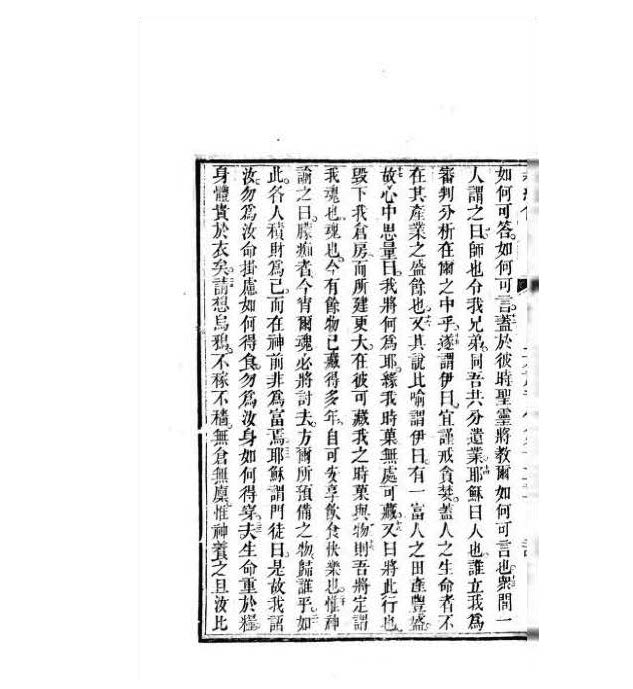 如何可答如何可言蓋於彼時聖靈將教爾如何可言也衆間一
人謂之曰師也分我兄弟同吾共分遺業耶穌曰人也誰立我爲
審判分析在爾之中乎遂謂伊曰宜謹戒貪婪蓋人之生命者不
在其產業之盛餘也又其說比喻謂伊曰有一富人之田產豐盛
故心中思量曰我將何爲耶緣我時菓無處可藏又曰將此行也
毀下我倉房而所建更大在彼可藏我之時菓與物則吾將定謂
我魂也魂也今有餘物已藏得多年自可安享飲食快樂也惟神
諭之曰朦痴者今宵爾魂必將討去方爾所預備之物歸誰乎如
此各人積財爲己而在神前非爲富焉耶穌謂門徒曰是故我語
汝勿爲汝命掛慮如何得食勿爲汝身如何得穿夫生命重於糧
身體貴於衣矣請想烏鴉不稼不穡無倉無廩惟神養之且汝比